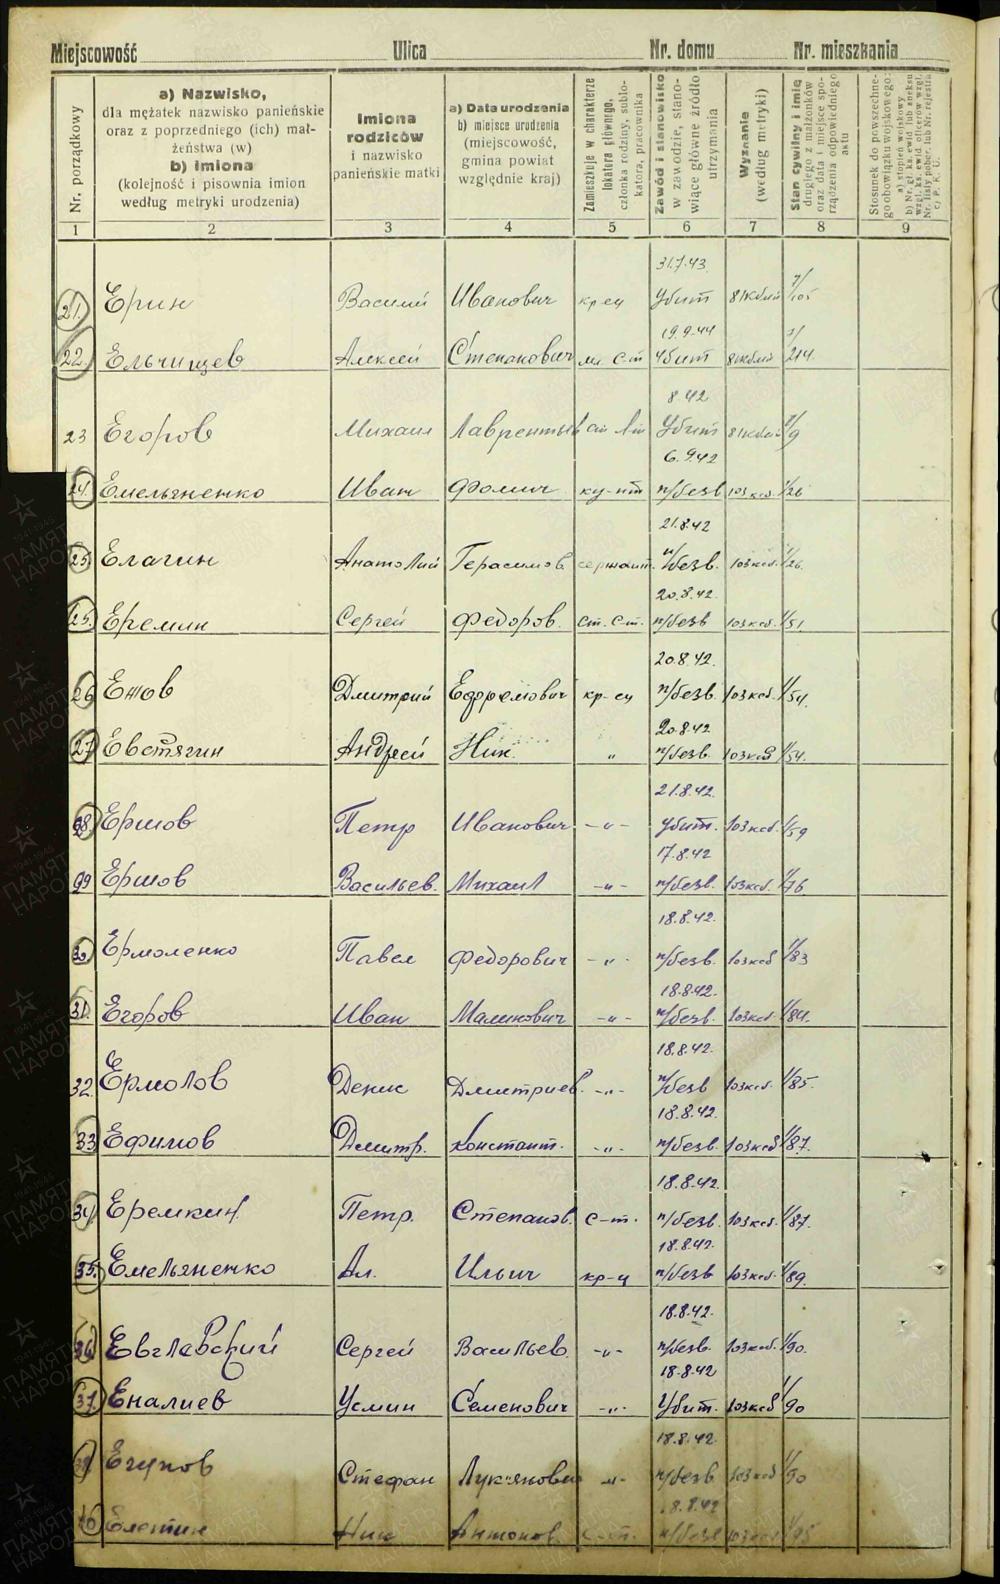 Miejscowość Ulica Nr. domu Nr. mieszkania
Nr. porządkowy
a) Nazwisko,
dla mężatek nazwisko panieńskie
oraz z poprzedniego (ich) mał-
żeństwa (w)
b) Imiona
(kolejność i pisownia imion
według metryki urodzenia)
Imiona
rodziców
i nazwisko
panieńskie matki
a) Data urodzenia
b) miejsce urodzenia
(miejscowość,
gmina powiat
względnie kraj)
Zamieszkuje w charakterze
lokatora głównego,
członka rodziny, sublo-
katora, pracownika
Zawód i stanowisko
w zawodzie, stano-
wiące główne źródło
utrzymania
Wyznanie
(według metryki)
Stan cywilny i imię
drugiego z małżonków
oraz data i miejsce spo-
rządzenia odpowiedniego
aktu
Stosunek do powszechne-
go obowiązku wojskowego:
a) stopień wojskowy
1 2 3 4 5 6 7 8 9
31.7.43.
21. Ерин Василий Иванович кр-ец Убит 81кбмп 7/105
19.9.44
22. Ельчищев Алексей Степанович мл. с-т Убит 81кбмп 214.
8.42
23 Егоров Михаил Лаврентьев Убит
6.9.42
24. Емельяненко Иван Фомич ку-нт п/безв 103 ксб. 1/26
21.8.42
25. Елагин Анатолий Герасимов сержант. п/безв. 103ксб. 1/26.
20.8.42.
25. Еремин Сергей Федоров. ст. с-т. п/безв 103ксб. 1/51.
20.8.42.
26 Ежов Дмитрий Ефремович кр-ец п/безв. 103ксб. 1/54.
20.8.42
27 Евстягин Андрей Ник. " п/безв. 103ксб 1/54.
21.8.42.
28. Ершов Петр Иванович -"- убит. 103ксб. 1/59
17.8.42
29 Ершов Васильев. Михаил -"- п/безв. 103ксб. 1/76
18.8.42.
30 Ермоленко Павел Федорович -"- п/безв. 103ксб 1/83
18.8.42.
31. Егоров Иван Маликович -"- п/безв. 103ксб. 1/84.
18.8.42.
32. Ермолов Денис Дмитриев. -"- п/безв 103ксб. 1/85.
18.8.42.
33 Ефимов Дмитр. Констант. -"- п/безв. 103ксб 1/87.
18.8.42.
34. Еремкин. Петр. Степанов. с-т. п/безв. 103ксб. 1/87.
18.8.42.
35. Емельяненко Ал. Ильич кр-ц п/безв 103ксб. 1/89.
18.8.42.
36 Сергей Васильев. -"- п/безв. 103ксб. 1/90.
18.8.42
37. Еналиев Усмин Семенович -"- Убит. 103ксб 1/90
18.8.42.
Егупов Стефан Лукьянович -"- п/безв 103ксб 1/90
18.8.42
Ник Антонов. с-т. п/безв